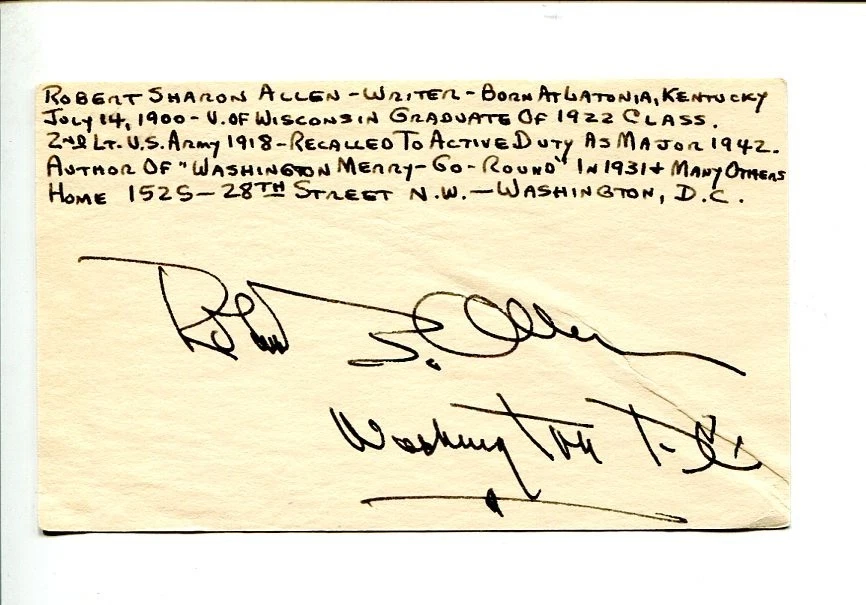 ROBERT SHARON ALLEN - WRITER - BORN AT LATONIA, KENTUCKY
JULY 14, 1900 - U. OF WISCONSIN GRADUATE OF 1922 CLASS.
2nd LT. U.S. ARMY 1918 - RECALLED TO ACTIVE DUTY AS MAJOR 1942.
AUTHOR OF "WASHINGTON MERRY-GO-ROUND" IN 1931 + MANY OTHERS
HOME 1525 - 28TH STREET N.W. - WASHINGTON, D.C.
Robert S. Allen
Washington D.C.